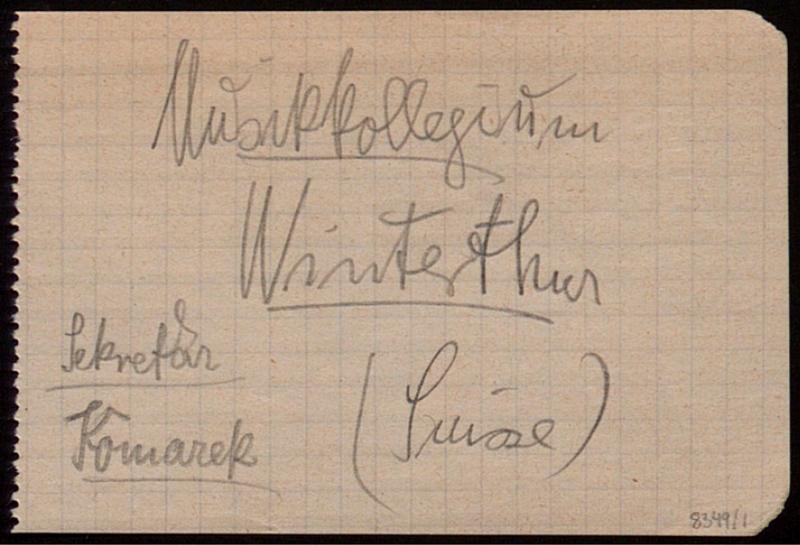 Musikkollegium
Winterthur
(Suisse)
Sekretär
Komarek
8349/1